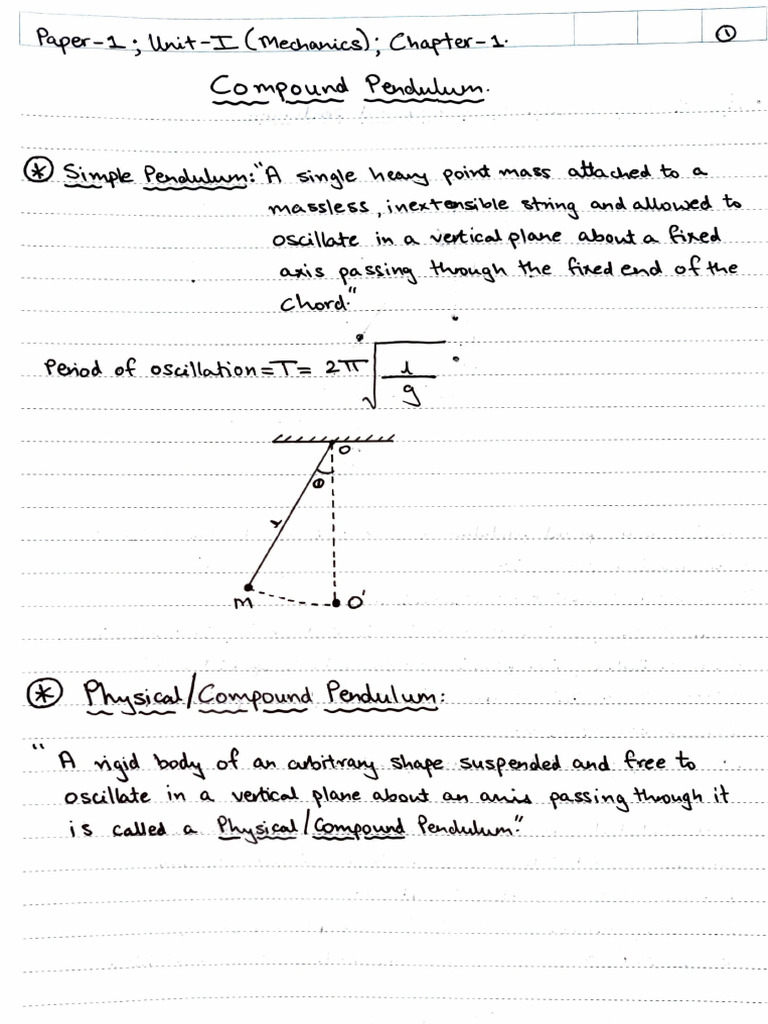 Paper-1; Unit-I (Mechanics); Chapter-1. ①
Compound Pendulum.
⊛ Simple Pendulum: "A single heavy point mass attached to a
massless, inextensible string and allowed to
oscillate in a vertical plane about a fixed
axis passing through the fixed end of the
chord."
Period of oscillation = T = 2π√(l/g)
O
θ
l
M O'
⊛ Physical/Compound Pendulum:
"A rigid body of an arbitrary shape suspended and free to
oscillate in a vertical plane about an axis passing through it
is called a Physical/Compound Pendulum."